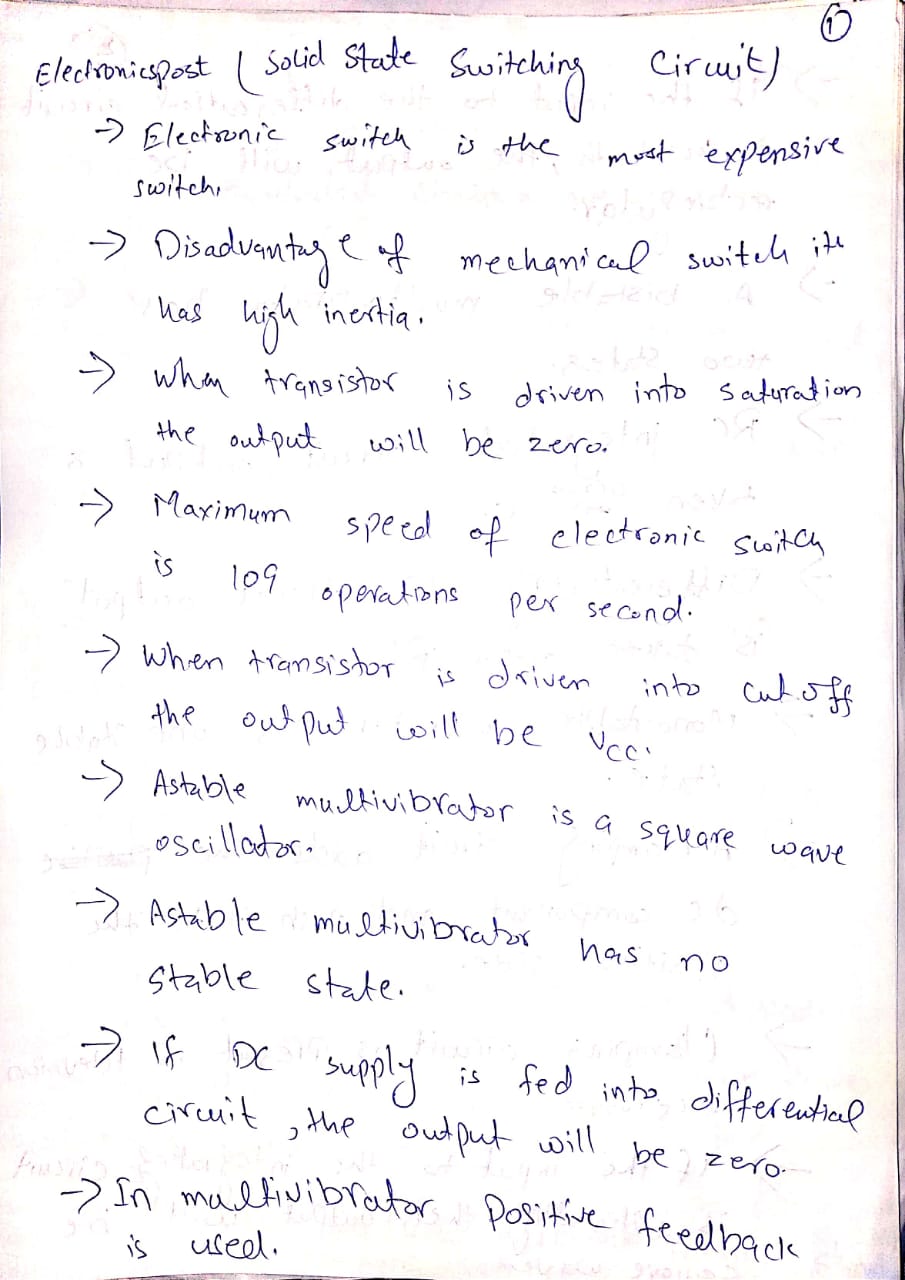 1
Electronicspost ( Solid State Switching Circuit)
→ Electronic switch is the most expensive
switch,
→ Disadvantage of mechanical switch its
has high inertia.
→ When transistor is driven into saturation
the output will be zero.
→ Maximum speed of electronic switch
is 109 operations per second.
→ When transistor is driven into cut off
the output will be Vcc.
→ Astable multivibrator is a square wave
oscillator.
→ Astable multivibrator has no
stable state.
→ If DC supply is fed into differential
circuit, the output will be zero.
→ In multivibrator Positive feedback
is used.